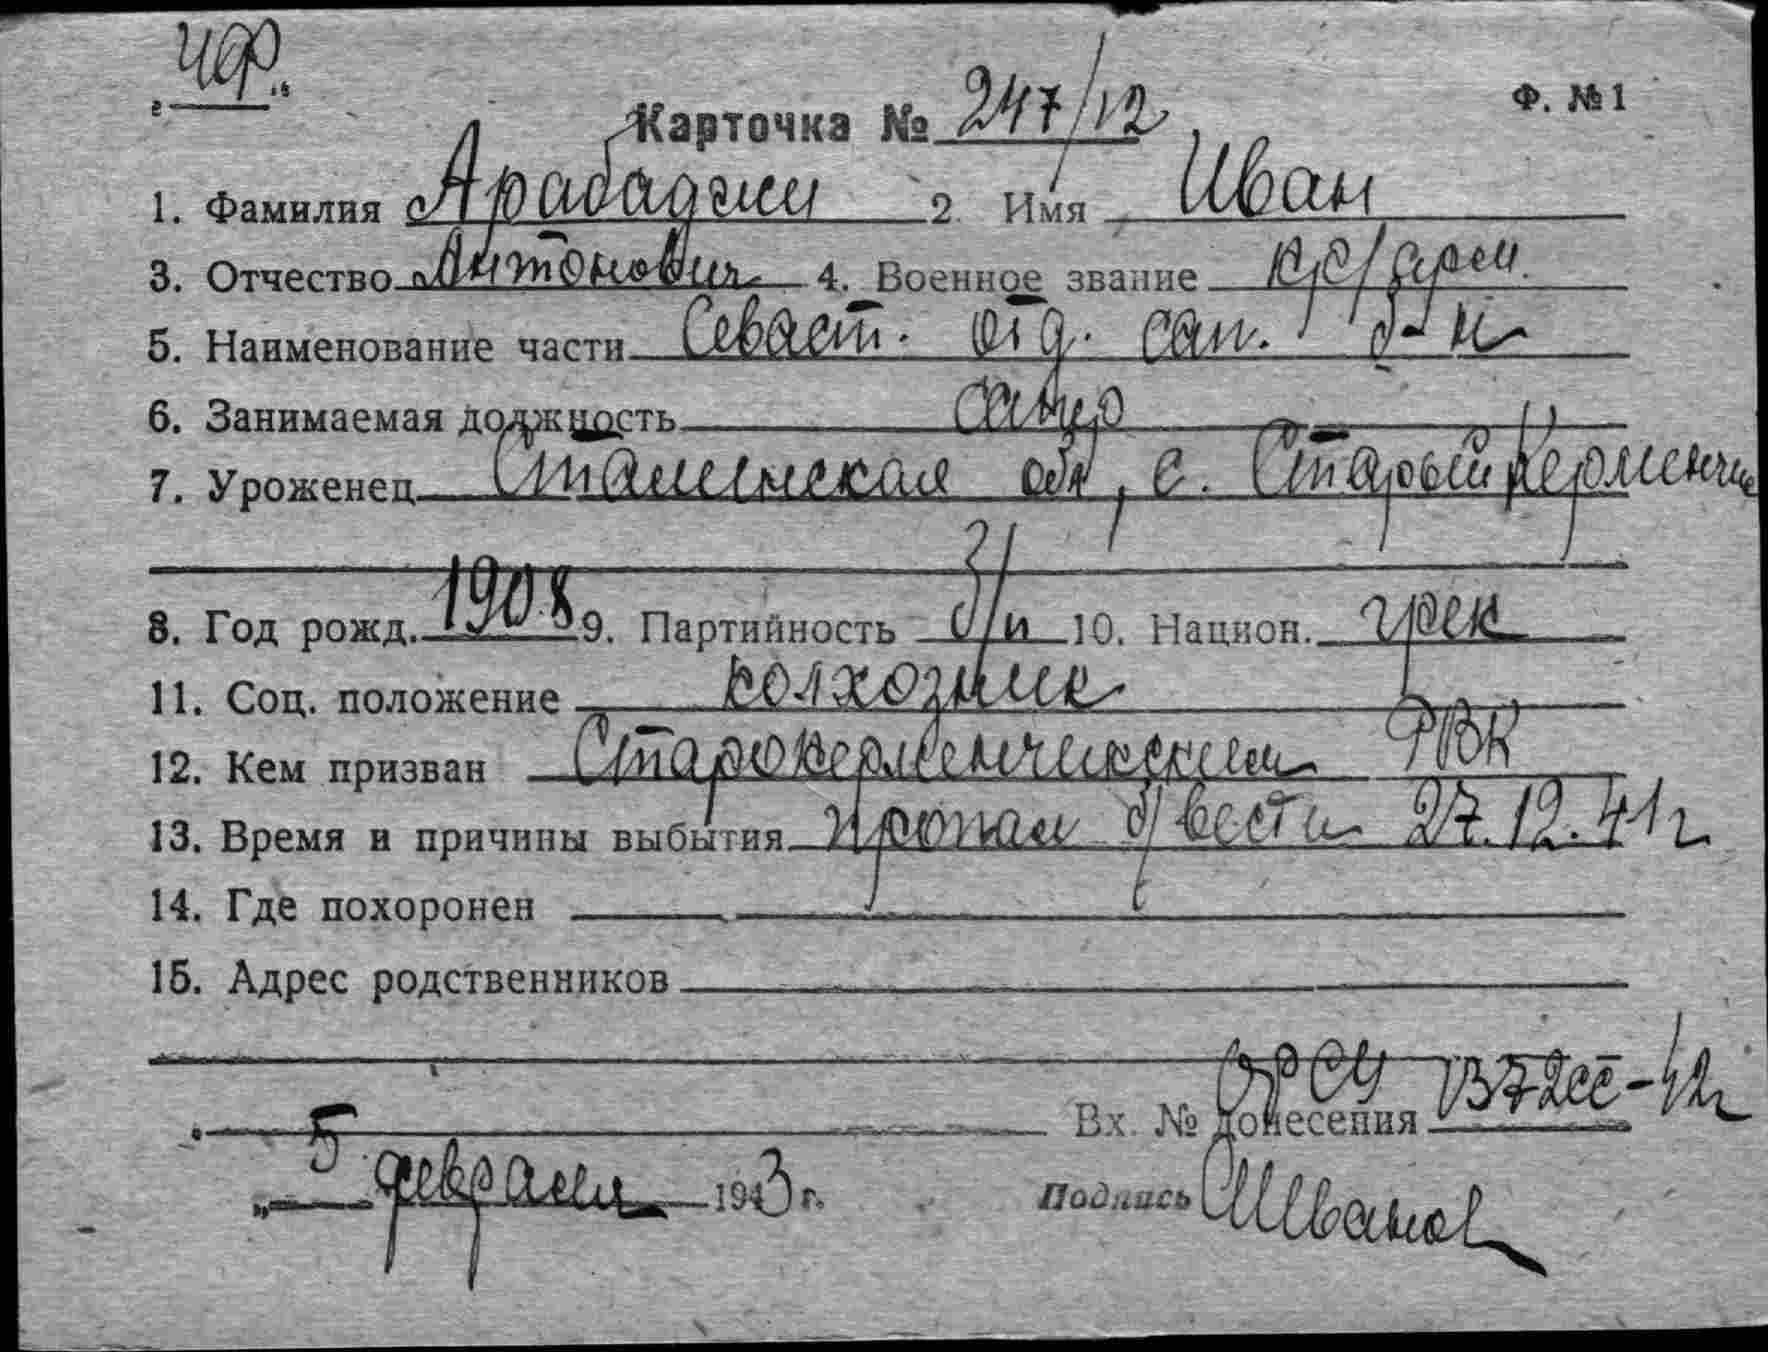 ЧФ.
Карточка № 247/12 Ф. №1
1. Фамилия Арабаджи 2. Имя Иван
3. Отчество Антонович 4. Военное звание кр/арм.
5. Наименование части Севаст. отд. сап. б-н
6. Занимаемая должность сапер
7. Уроженец Сталинская обл, с. Старый Керменчик
8. Год рожд. 1908 9. Партийность б/п 10. Национ. грек
11. Соц. положение колхозник
12. Кем призван Старокерменчикским РВК
13. Время и причины выбытия пропал б/вести 27.12.41г
14. Где похоронен
15. Адрес родственников
Вх. № донесения 1372сс-42г
5 февраля 1943 г. Подпись